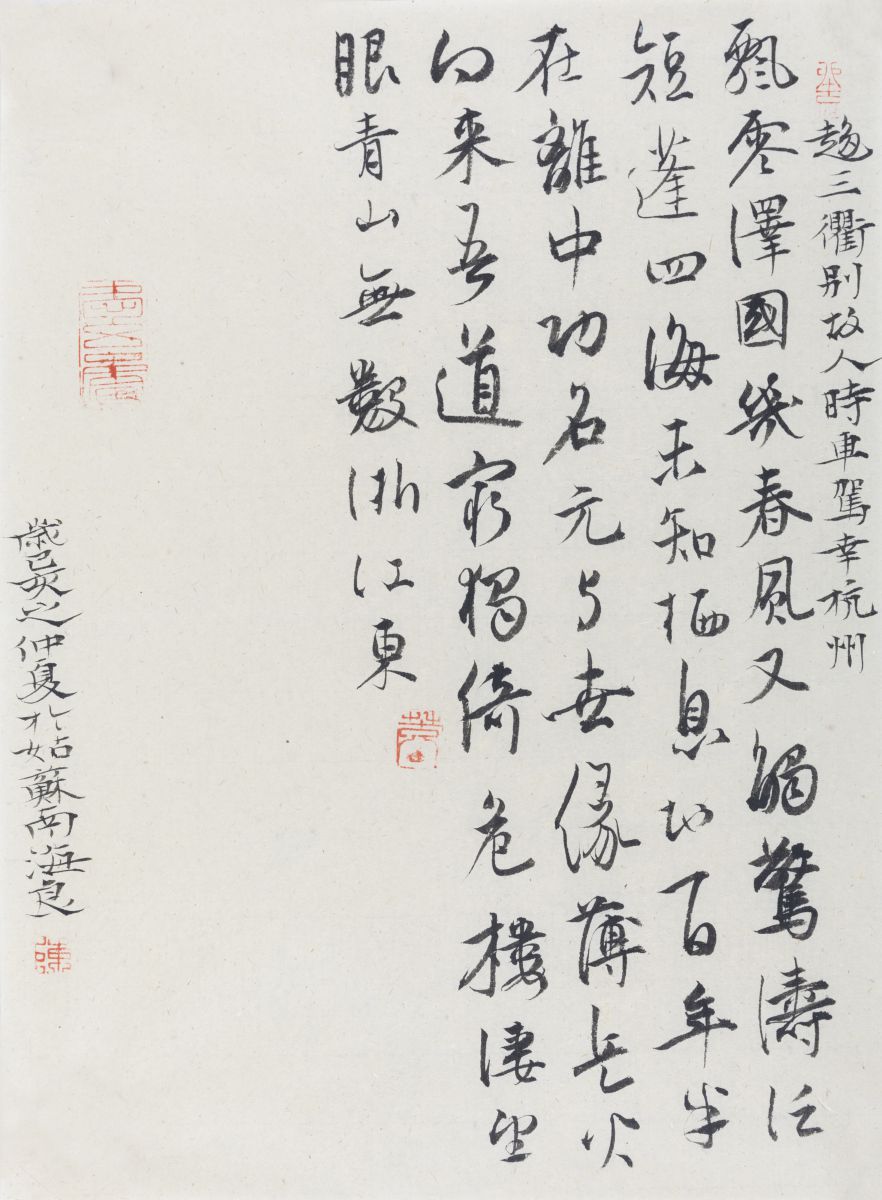 趋三衢别故人時車駕幸杭州
飄零澤國幾春風又觸驚濤泛
短蓬四海未知栖息地百年半
在離中功名元与世缘薄兵火
向来吾道窮獨倚危樓凄望
眼青山無數浙江東
歲己亥之仲夏於姑蘇南海良